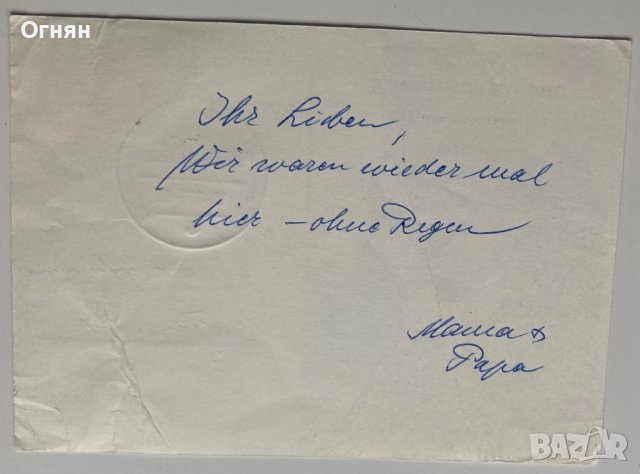 Огнян
Ihr Lieben,
Wir waren wieder mal
hier – ohne Regen
Mama &
Papa
BAZAR